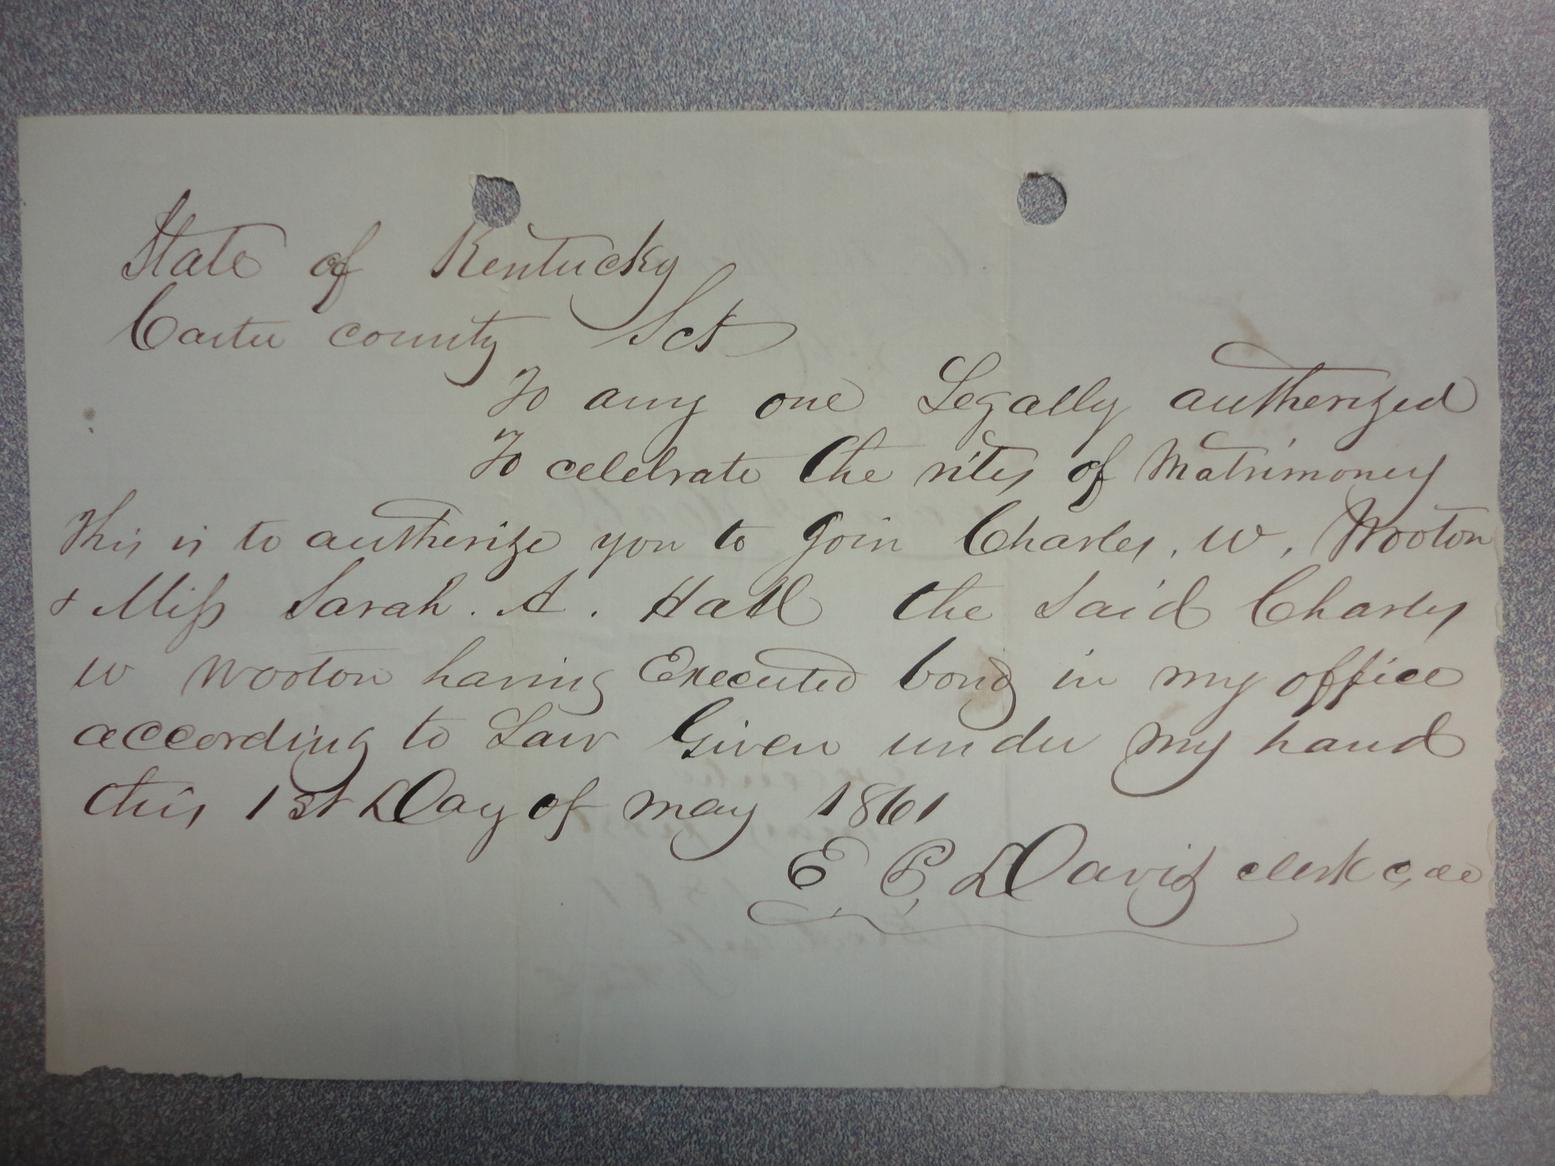 State of Kentucky
Carter county Sct
To any one Legally authorized
To celebrate the rites of Matrimoney
This is to authorize you to Join Charles, W, Wooton
& Miss Sarah. A. Hall the said Charles
W Wooton having Executed bond in my office
according to Law Given under my hand
this 1st Day of may 1861
E P, Davis clerk